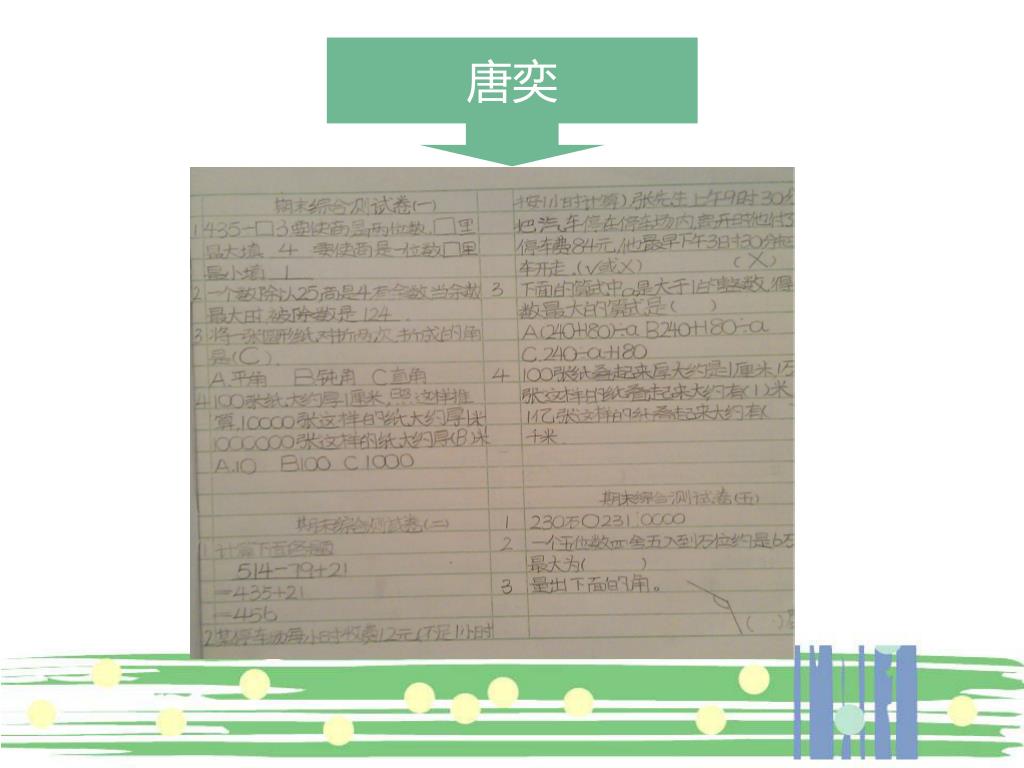 唐奕
期末综合测试卷(一)
1 435÷□3要使商是两位数,□里
最大填 4 要使商是一位数□里
最小填 1
2 一个数除以25商是4,有余数,当余数
最大时,被除数是124.
3 将一张圆形纸对折两次,折成的角
是(C)
A.平角 B.钝角 C直角
4 100张纸大约厚1厘米,照这样推
算,10000张这样的纸大约厚1米
1000000张这样的纸大约厚(B)米
A.10 B100 C1000
期末综合测试卷(二)
1 计算下面各题
514-79+21
=435+21
=456
2某停车场每小时收费12元(不足1小时
按1小时计算).张先生上午9时30分
把汽车停在停车场内,离开时他付了
停车费84元,他最早下午3时30分把
车开走.(√或X) (X)
3 下面的算式中a是大于1的整数,得
数最大的算式是( )
A(240+180)÷a B240+180÷a
C.240÷a+180
4 100张纸叠起来厚大约是1厘米,1万
张这样的纸叠起来大约有(1)米
1亿张这样的纸叠起来大约有(
千米
期末综合测试卷(五)
1 230万○2310000
2 一个五位数四舍五入到万位约是6万
最大为( )
3 量出下面的角。
( )